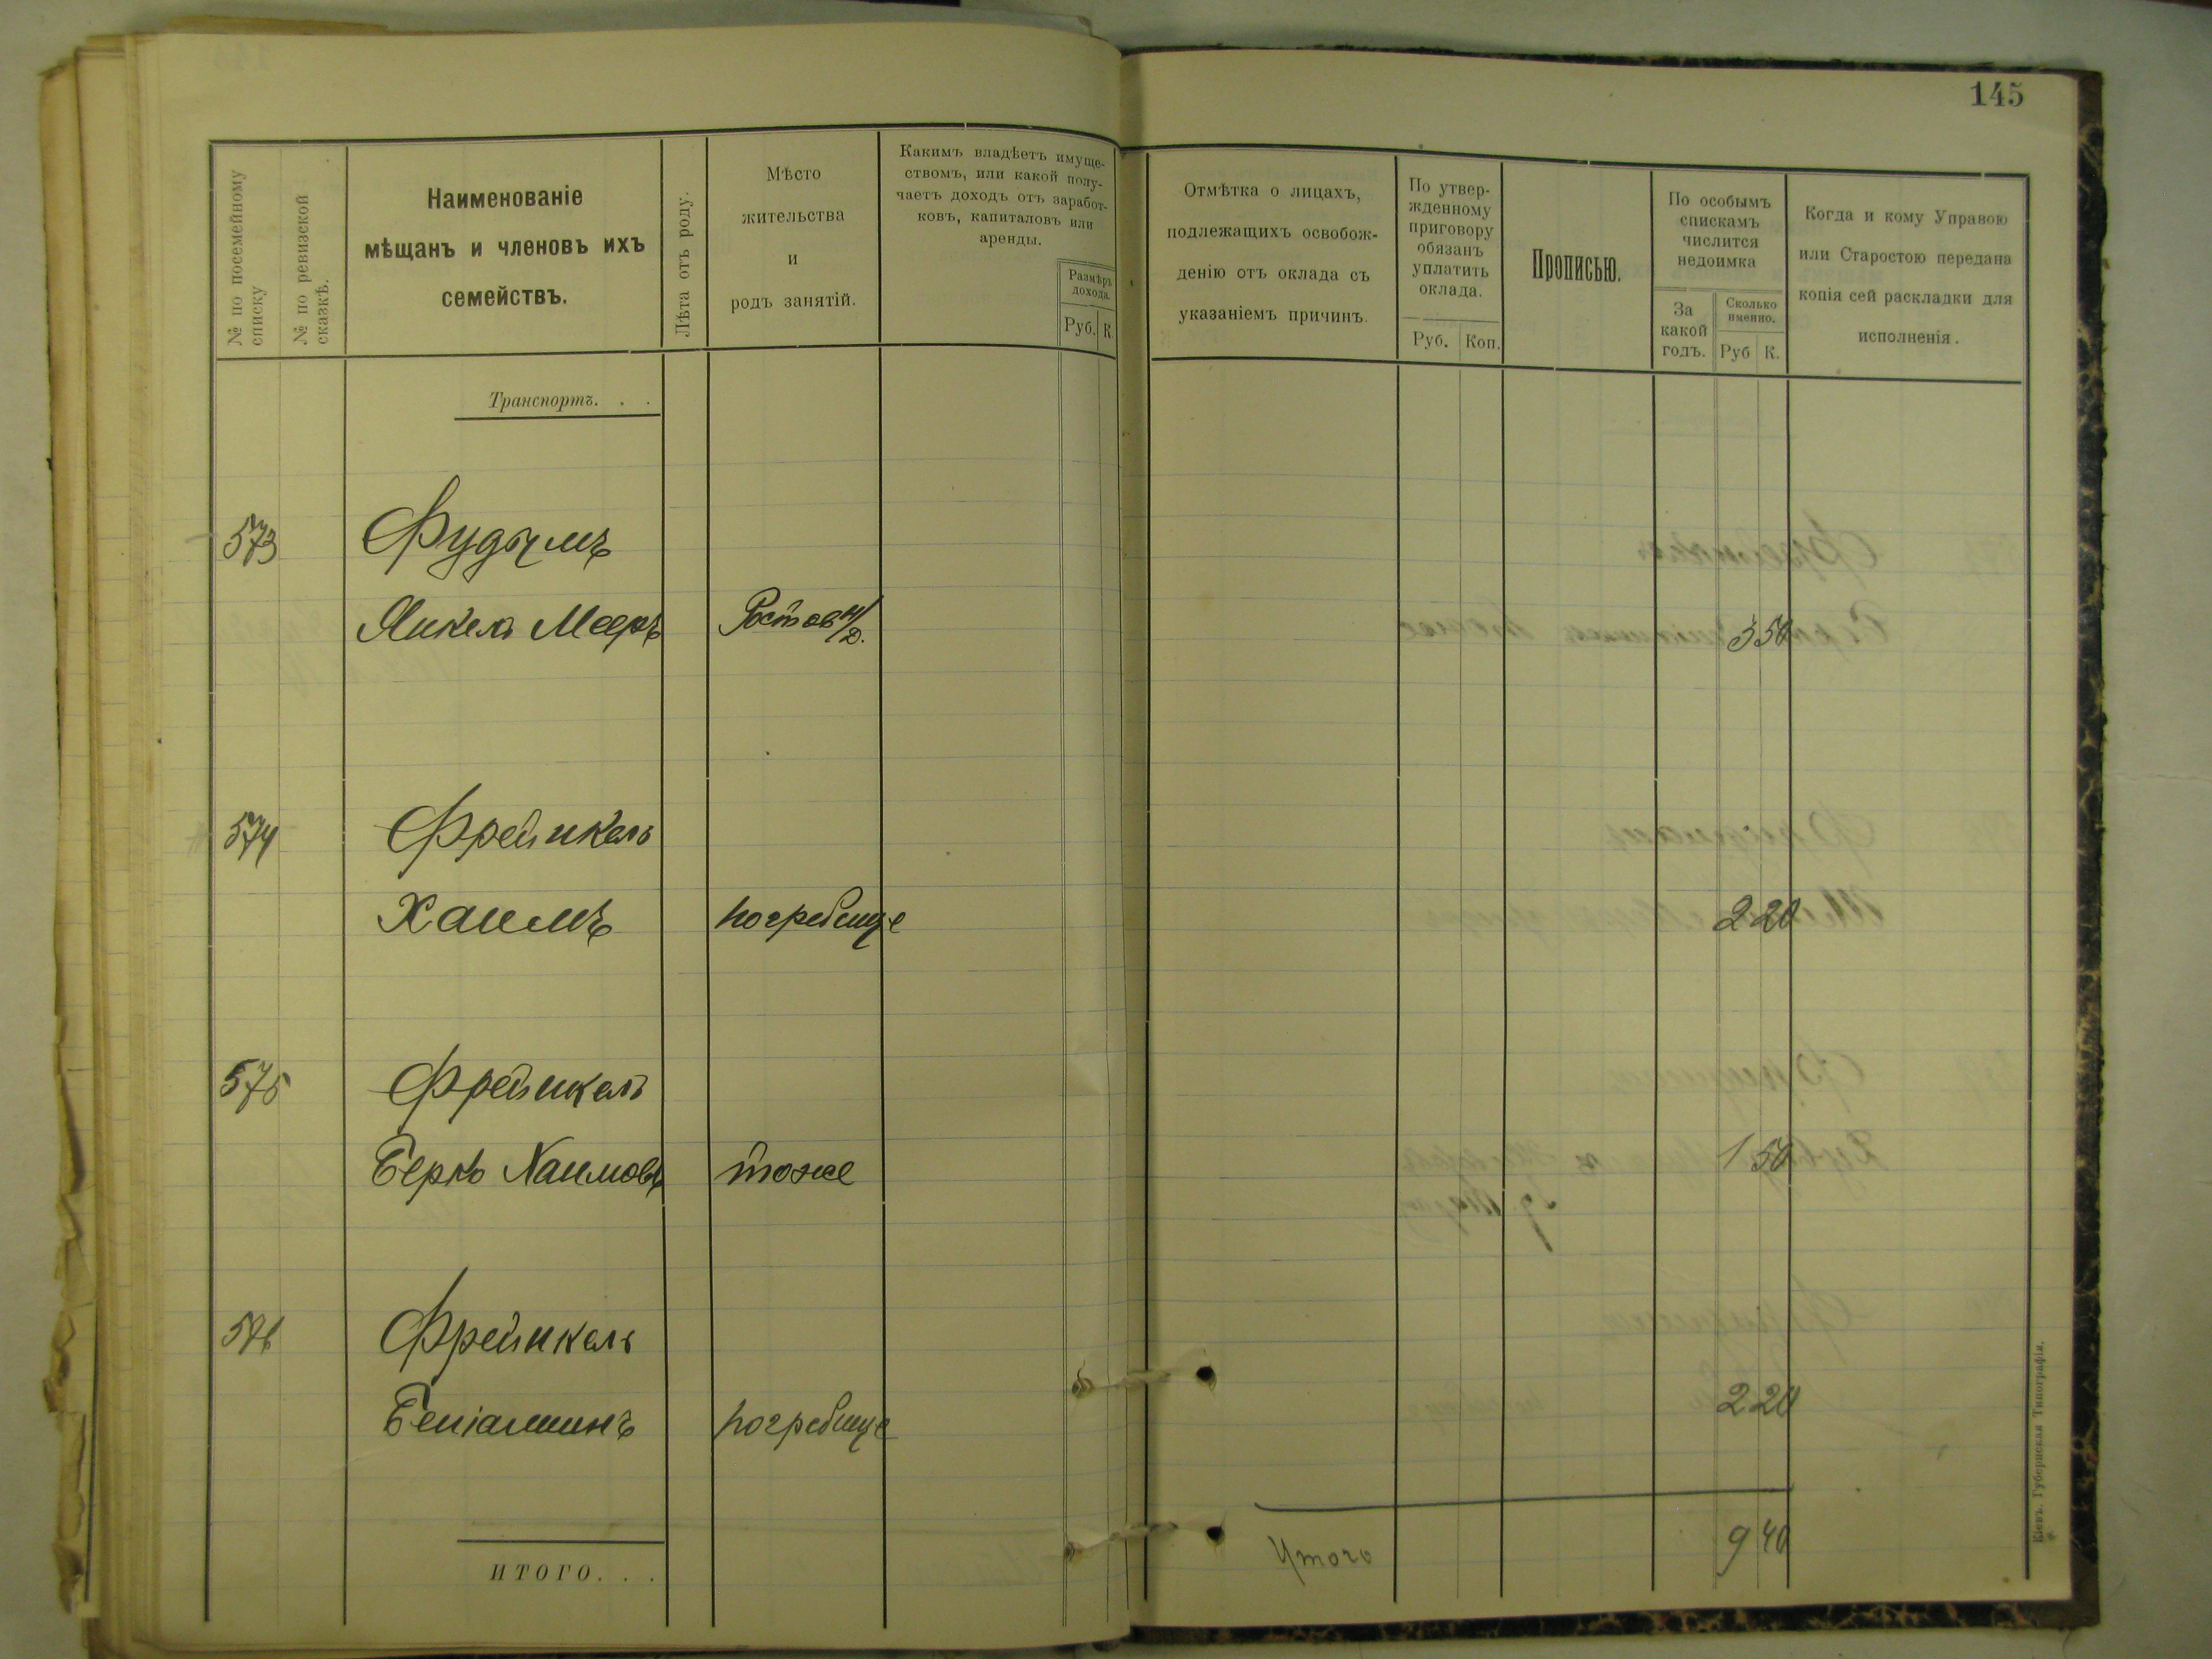 145
№ по посемейному списку
№ по ревизской сказкѣ.
Наименованіе
мѣщанъ и членовъ ихъ
семействъ.
Лѣта отъ роду.
Мѣсто
жительства
и
родъ занятій.
Какимъ владѣетъ имуще-
ствомъ, или какой полу-
чаетъ доходъ отъ заработ-
ковъ, капиталовъ или
аренды.
Размѣръ
дохода.
Руб. К.
Отмѣтка о лицахъ,
подлежащихъ освобож-
денію отъ оклада съ
указаніемъ причинъ.
По утвер-
жденному
приговору
обязанъ
уплатить
оклада.
Руб. Коп.
Прописью.
По особымъ
спискамъ
числится
недоимка
За
какой
годъ.
Сколько
именно.
Руб К.
Когда и кому Управою
или Старостою передана
копія сей раскладки для
исполненія.
Транспортъ. . .
573 Фудымъ
Янкель Мееръ Ростов н/Д. 3 50
574 Фрейнкель
Хаимъ погребище 2 20
575 Фрейнкель
Берко Хаимовъ тоже 1 50
576 Фрейнкель
Беніаминъ погребище 2 20
ИТОГО. . .
Итого 9 40
Кіевъ. Губернская Типографія.